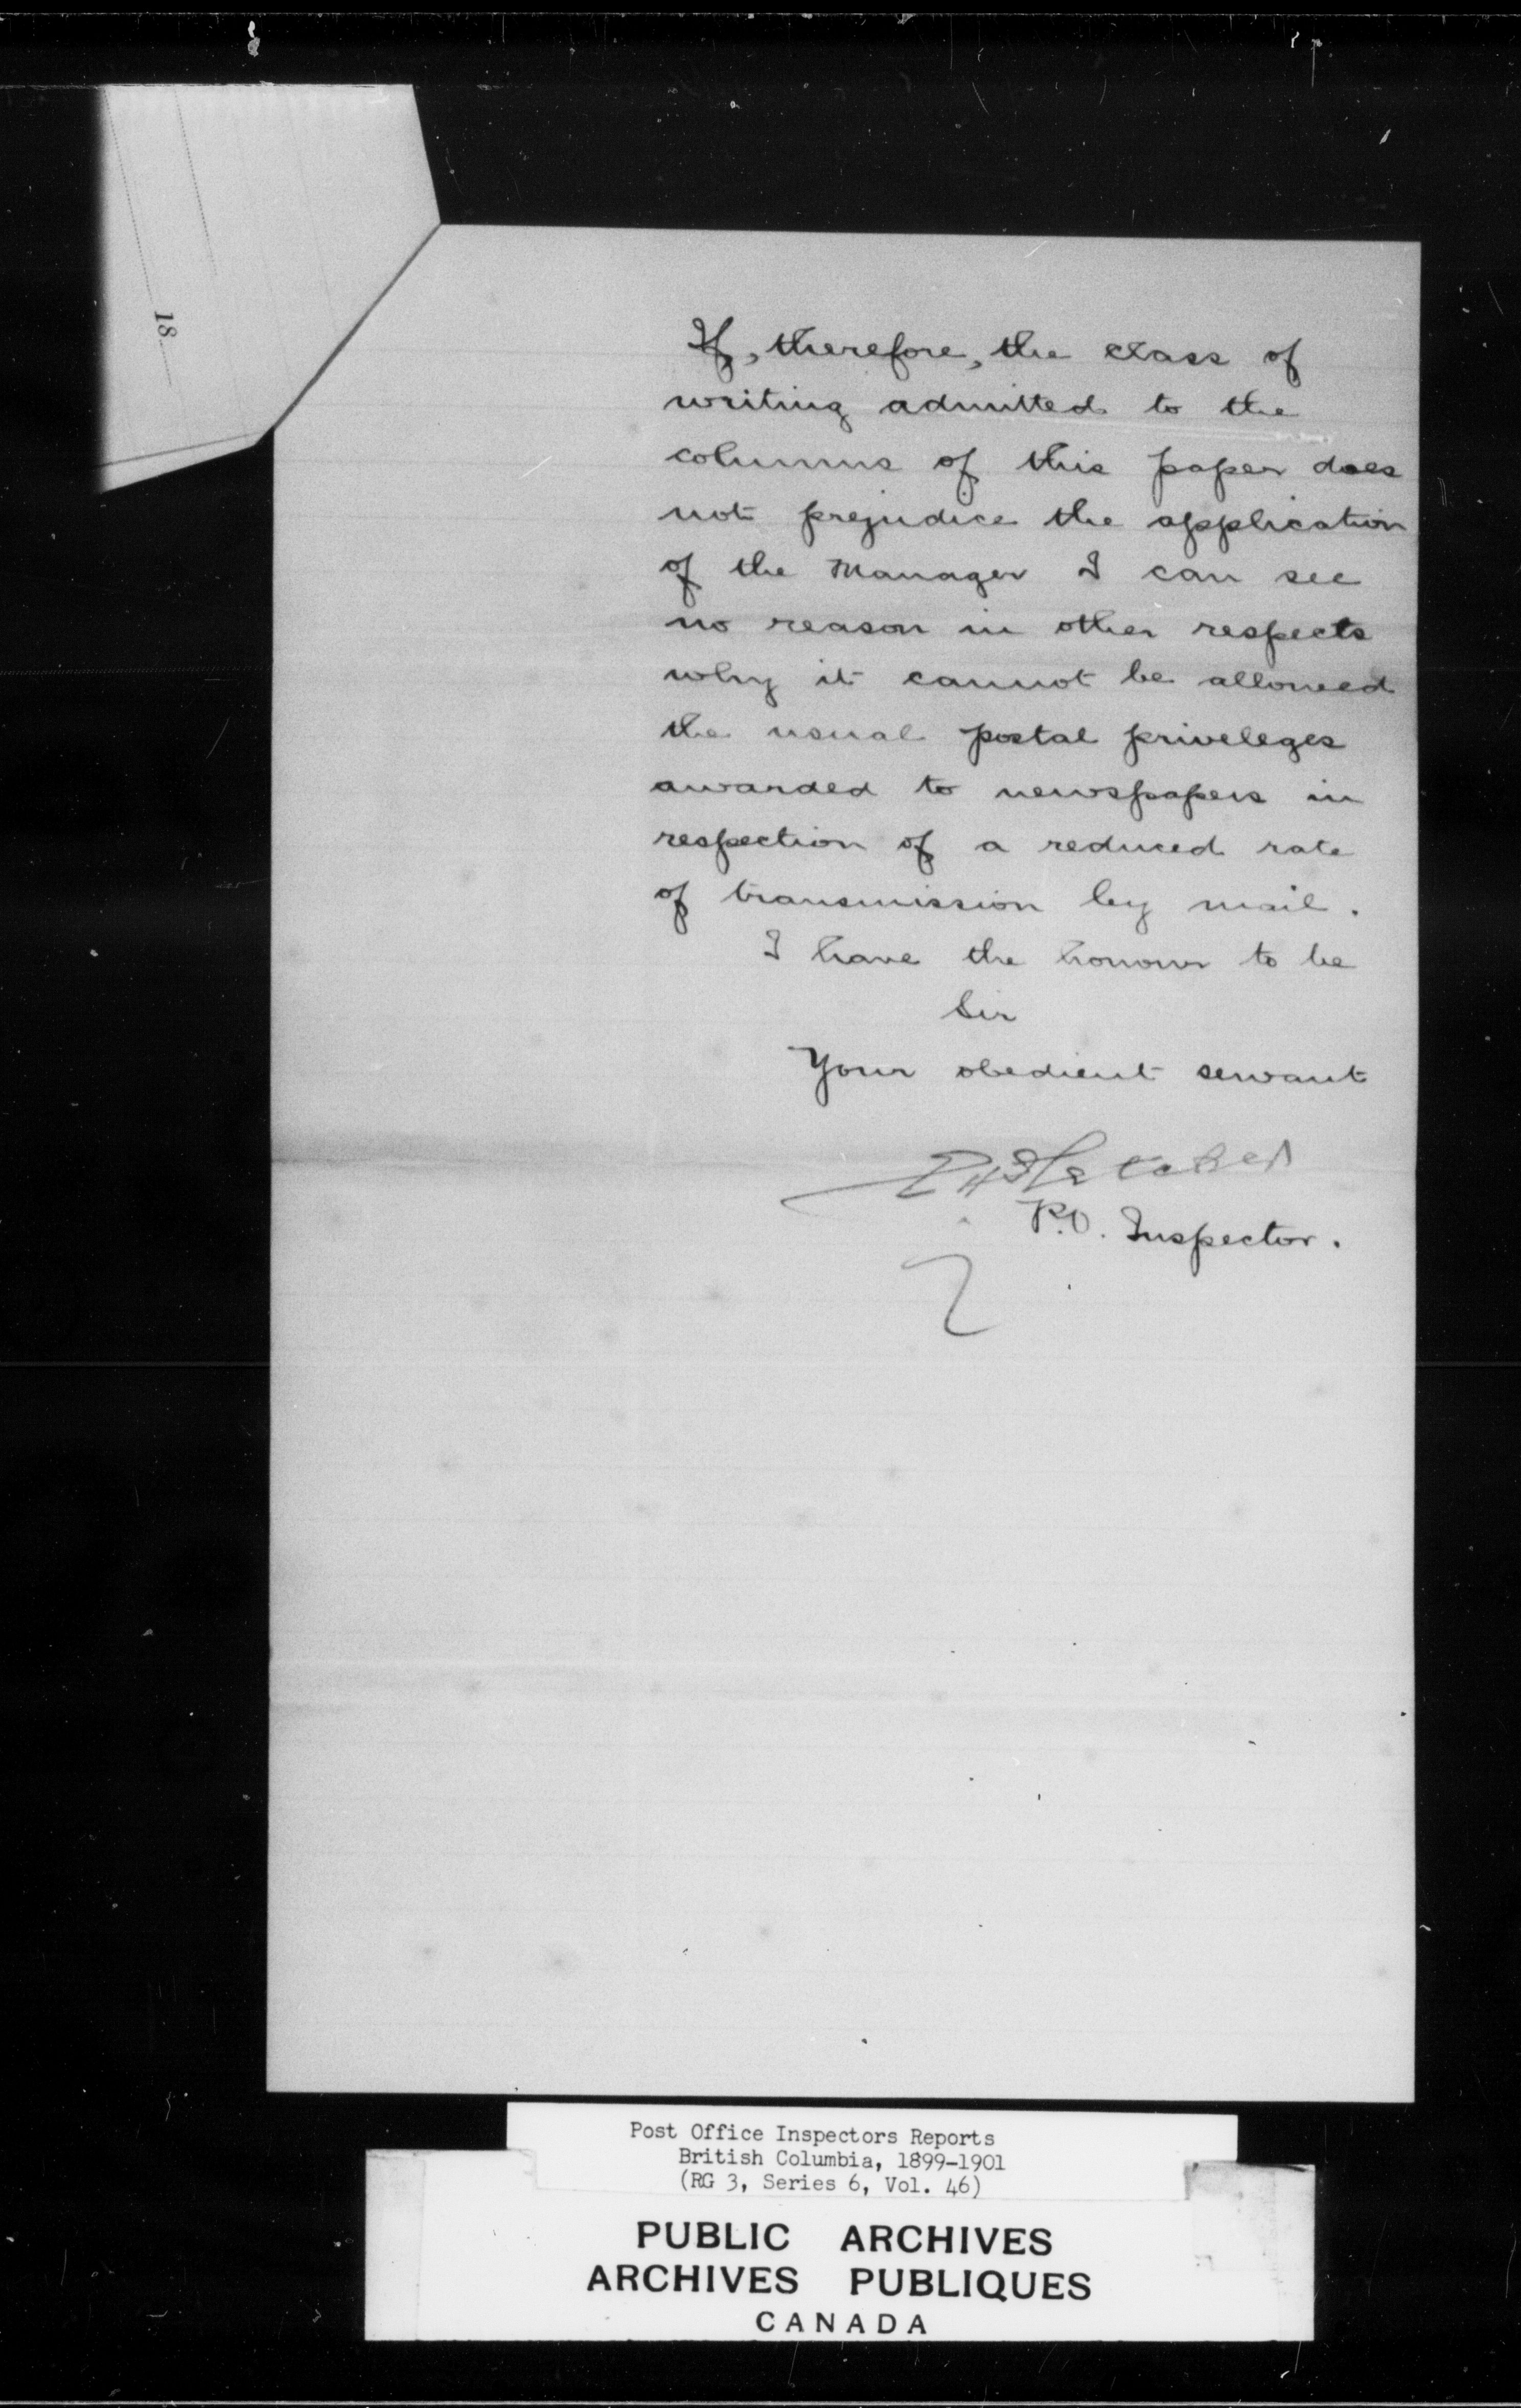 18
If, therefore, the class of
writing admitted to the
columns of this paper does
not prejudice the application
of the Manager I can see
no reason in other respects
why it cannot be allowed
the usual postal priveleges
awarded to newspapers in
respection of a reduced rate
of transmission by mail.
I have the honour to be
Sir
Your obedient servant
EHFletcher
P.O. Inspector.
Post Office Inspectors Reports
British Columbia, 1899-1901
(RG 3, Series 6, Vol. 46)
PUBLIC ARCHIVES
ARCHIVES PUBLIQUES
CANADA